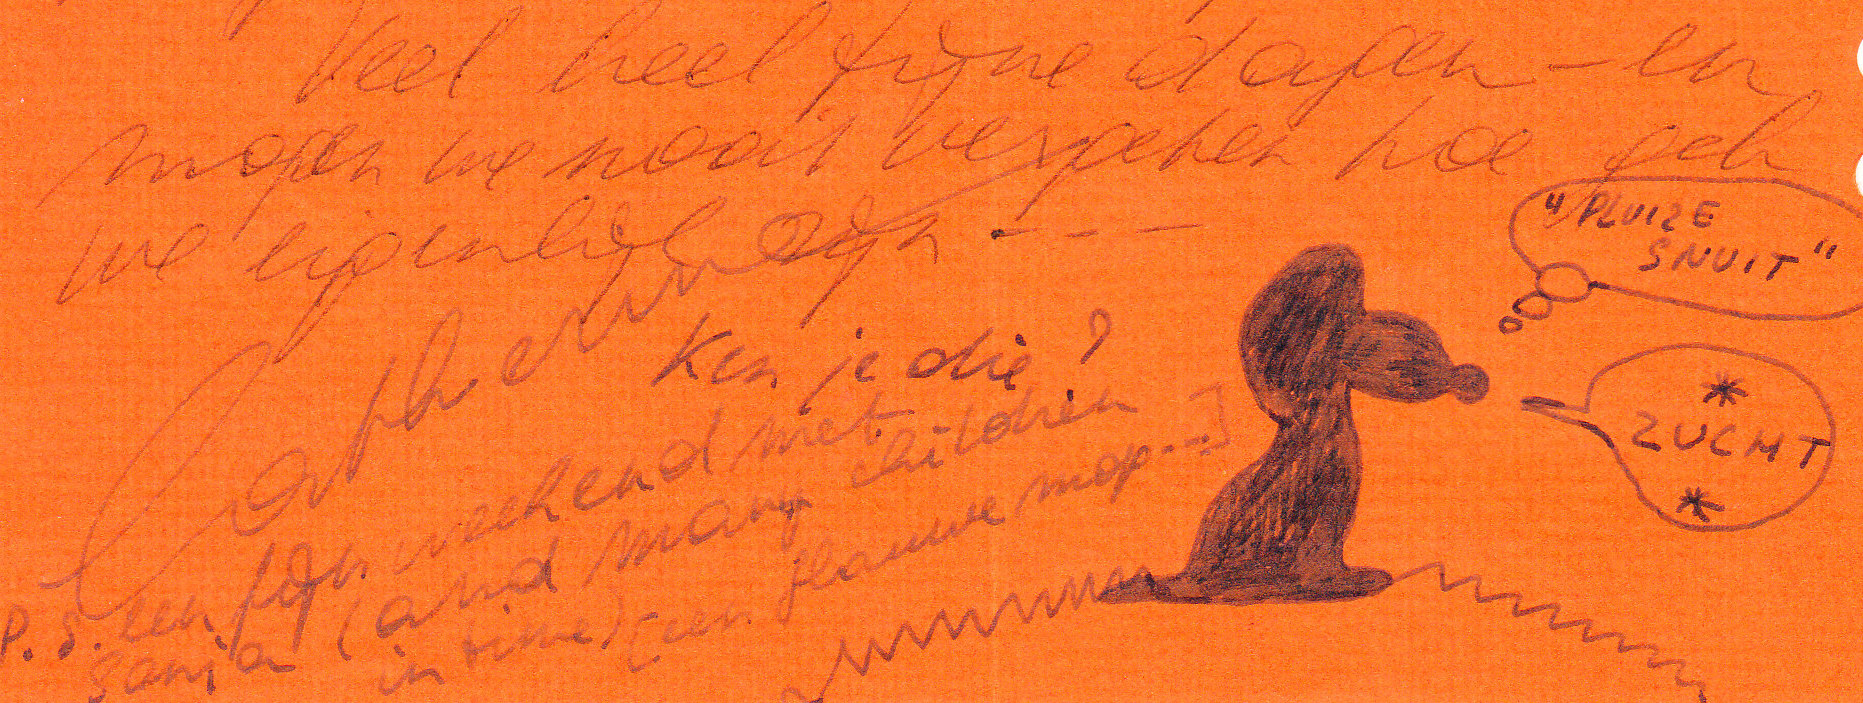 Veel heel fijne dagen - en
mogen we nooit vergeten hoe gek
we eigenlijk zijn - - - -
Ken je die?
P.S. een fijn weekend met
Sanja (and many children
in time) [een flauwe mop...]
"PLUIZE
SNUIT"
*
ZUCHT
*